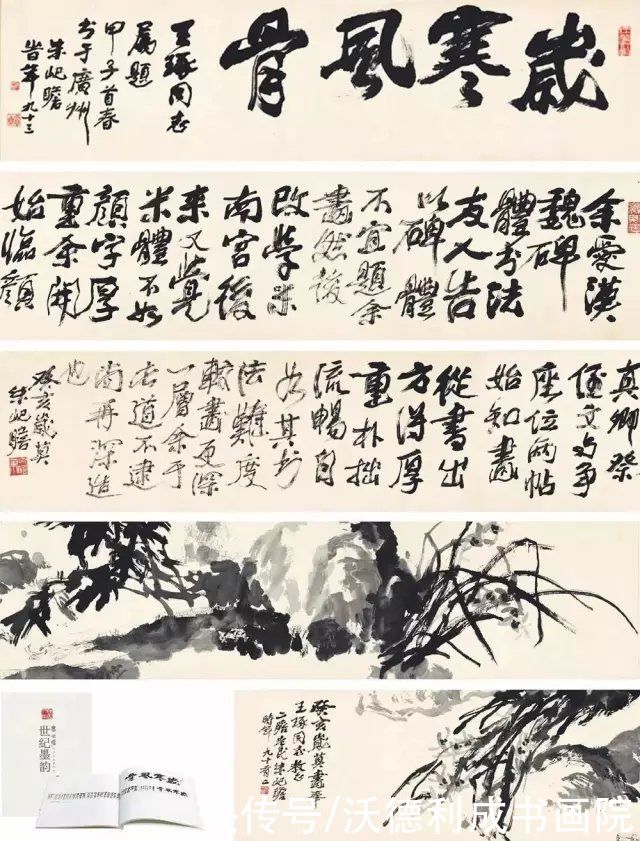 歲寒風骨
王琢同志
属題
甲子首春
书于廣州
朱屺瞻
旹年九十三
余愛漢
魏碑
體书法
友人告
以碑體
不宜題余
畫然後
改學米
南宮後
来又覺
米體不如
顔字厚
重余開
始臨顔
真卿祭
侄文与争
座位兩帖
始知畫
從書出
方得厚
重朴拙
流暢自
如其
法難度
較畫更深
一層余于
道不逮
尚再深造
也
癸亥歲莫
朱屺瞻
癸亥歲莫畫
王琢同志教正
二瞻老民朱屺瞻
時年九十有二
世纪墨韵
歲寒風骨
传号/沃德利成书画院